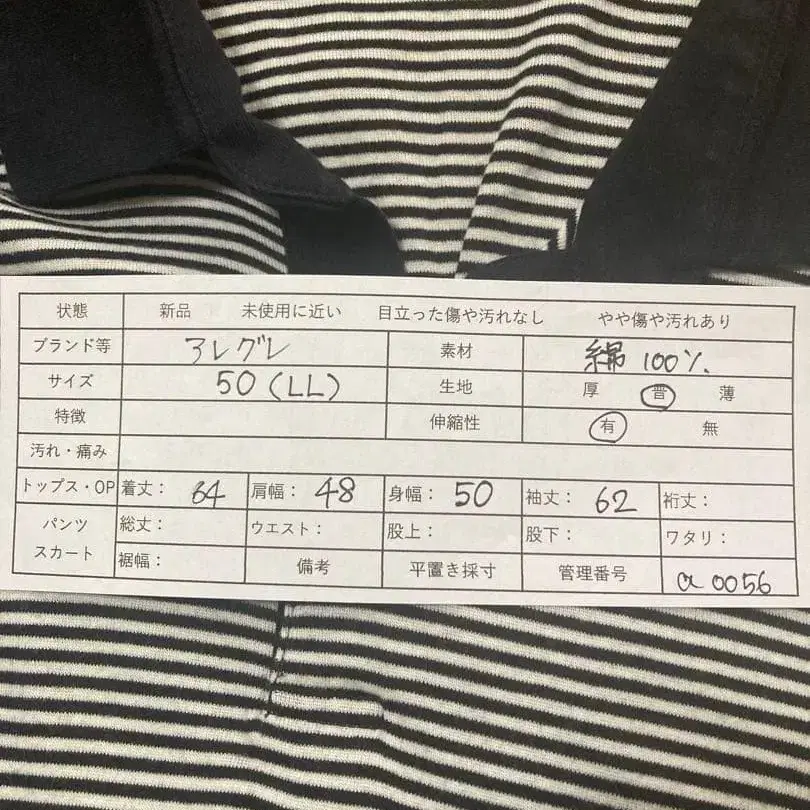 状態 新品 未使用に近い 目立った傷や汚れなし やや傷や汚れあり
ブランド等 アレグレ 素材 綿 100%
サイズ 50(LL) 生地 厚 普 薄
特徴 伸縮性 有 無
汚れ・痛み
トップス・OP 着丈: 64 肩幅: 48 身幅: 50 袖丈: 62 裄丈:
パンツ スカート 総丈: ウエスト: 股上: 股下: ワタリ:
裾幅: 備考 平置き採寸 管理番号 a0056